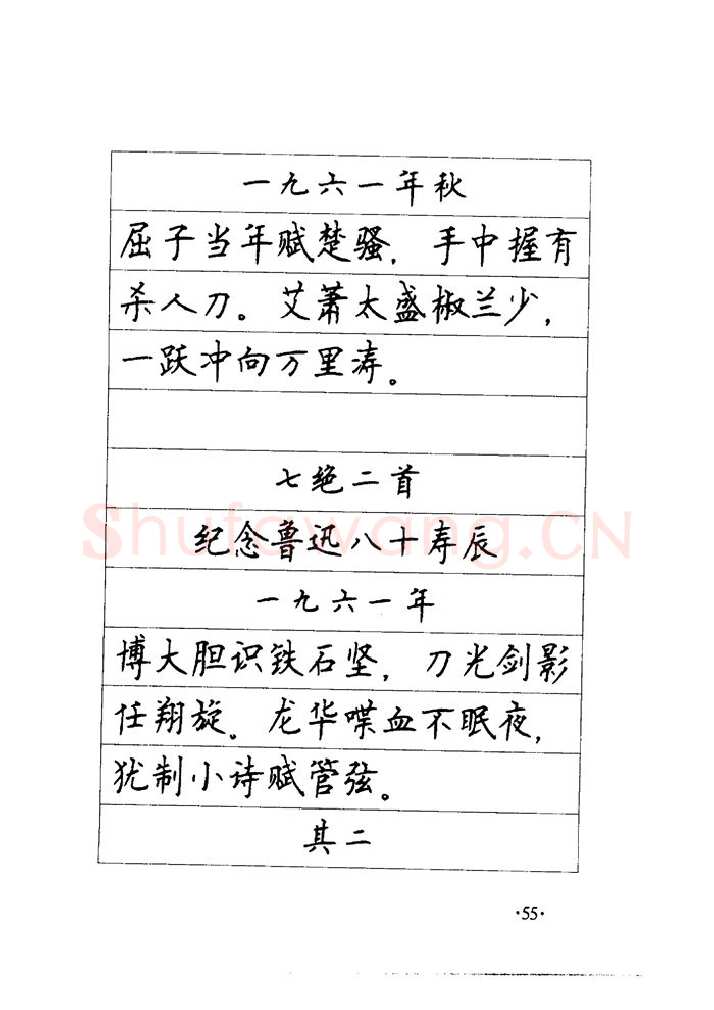 一九六一年秋
屈子当年赋楚骚，手中握有
杀人刀。艾萧太盛椒兰少，
一跃冲向万里涛。
七绝二首
Shufawang.CN
纪念鲁迅八十寿辰
一九六一年
博大胆识铁石坚，刀光剑影
任翔旋。龙华喋血不眠夜，
犹制小诗赋管弦。
其二
·55·